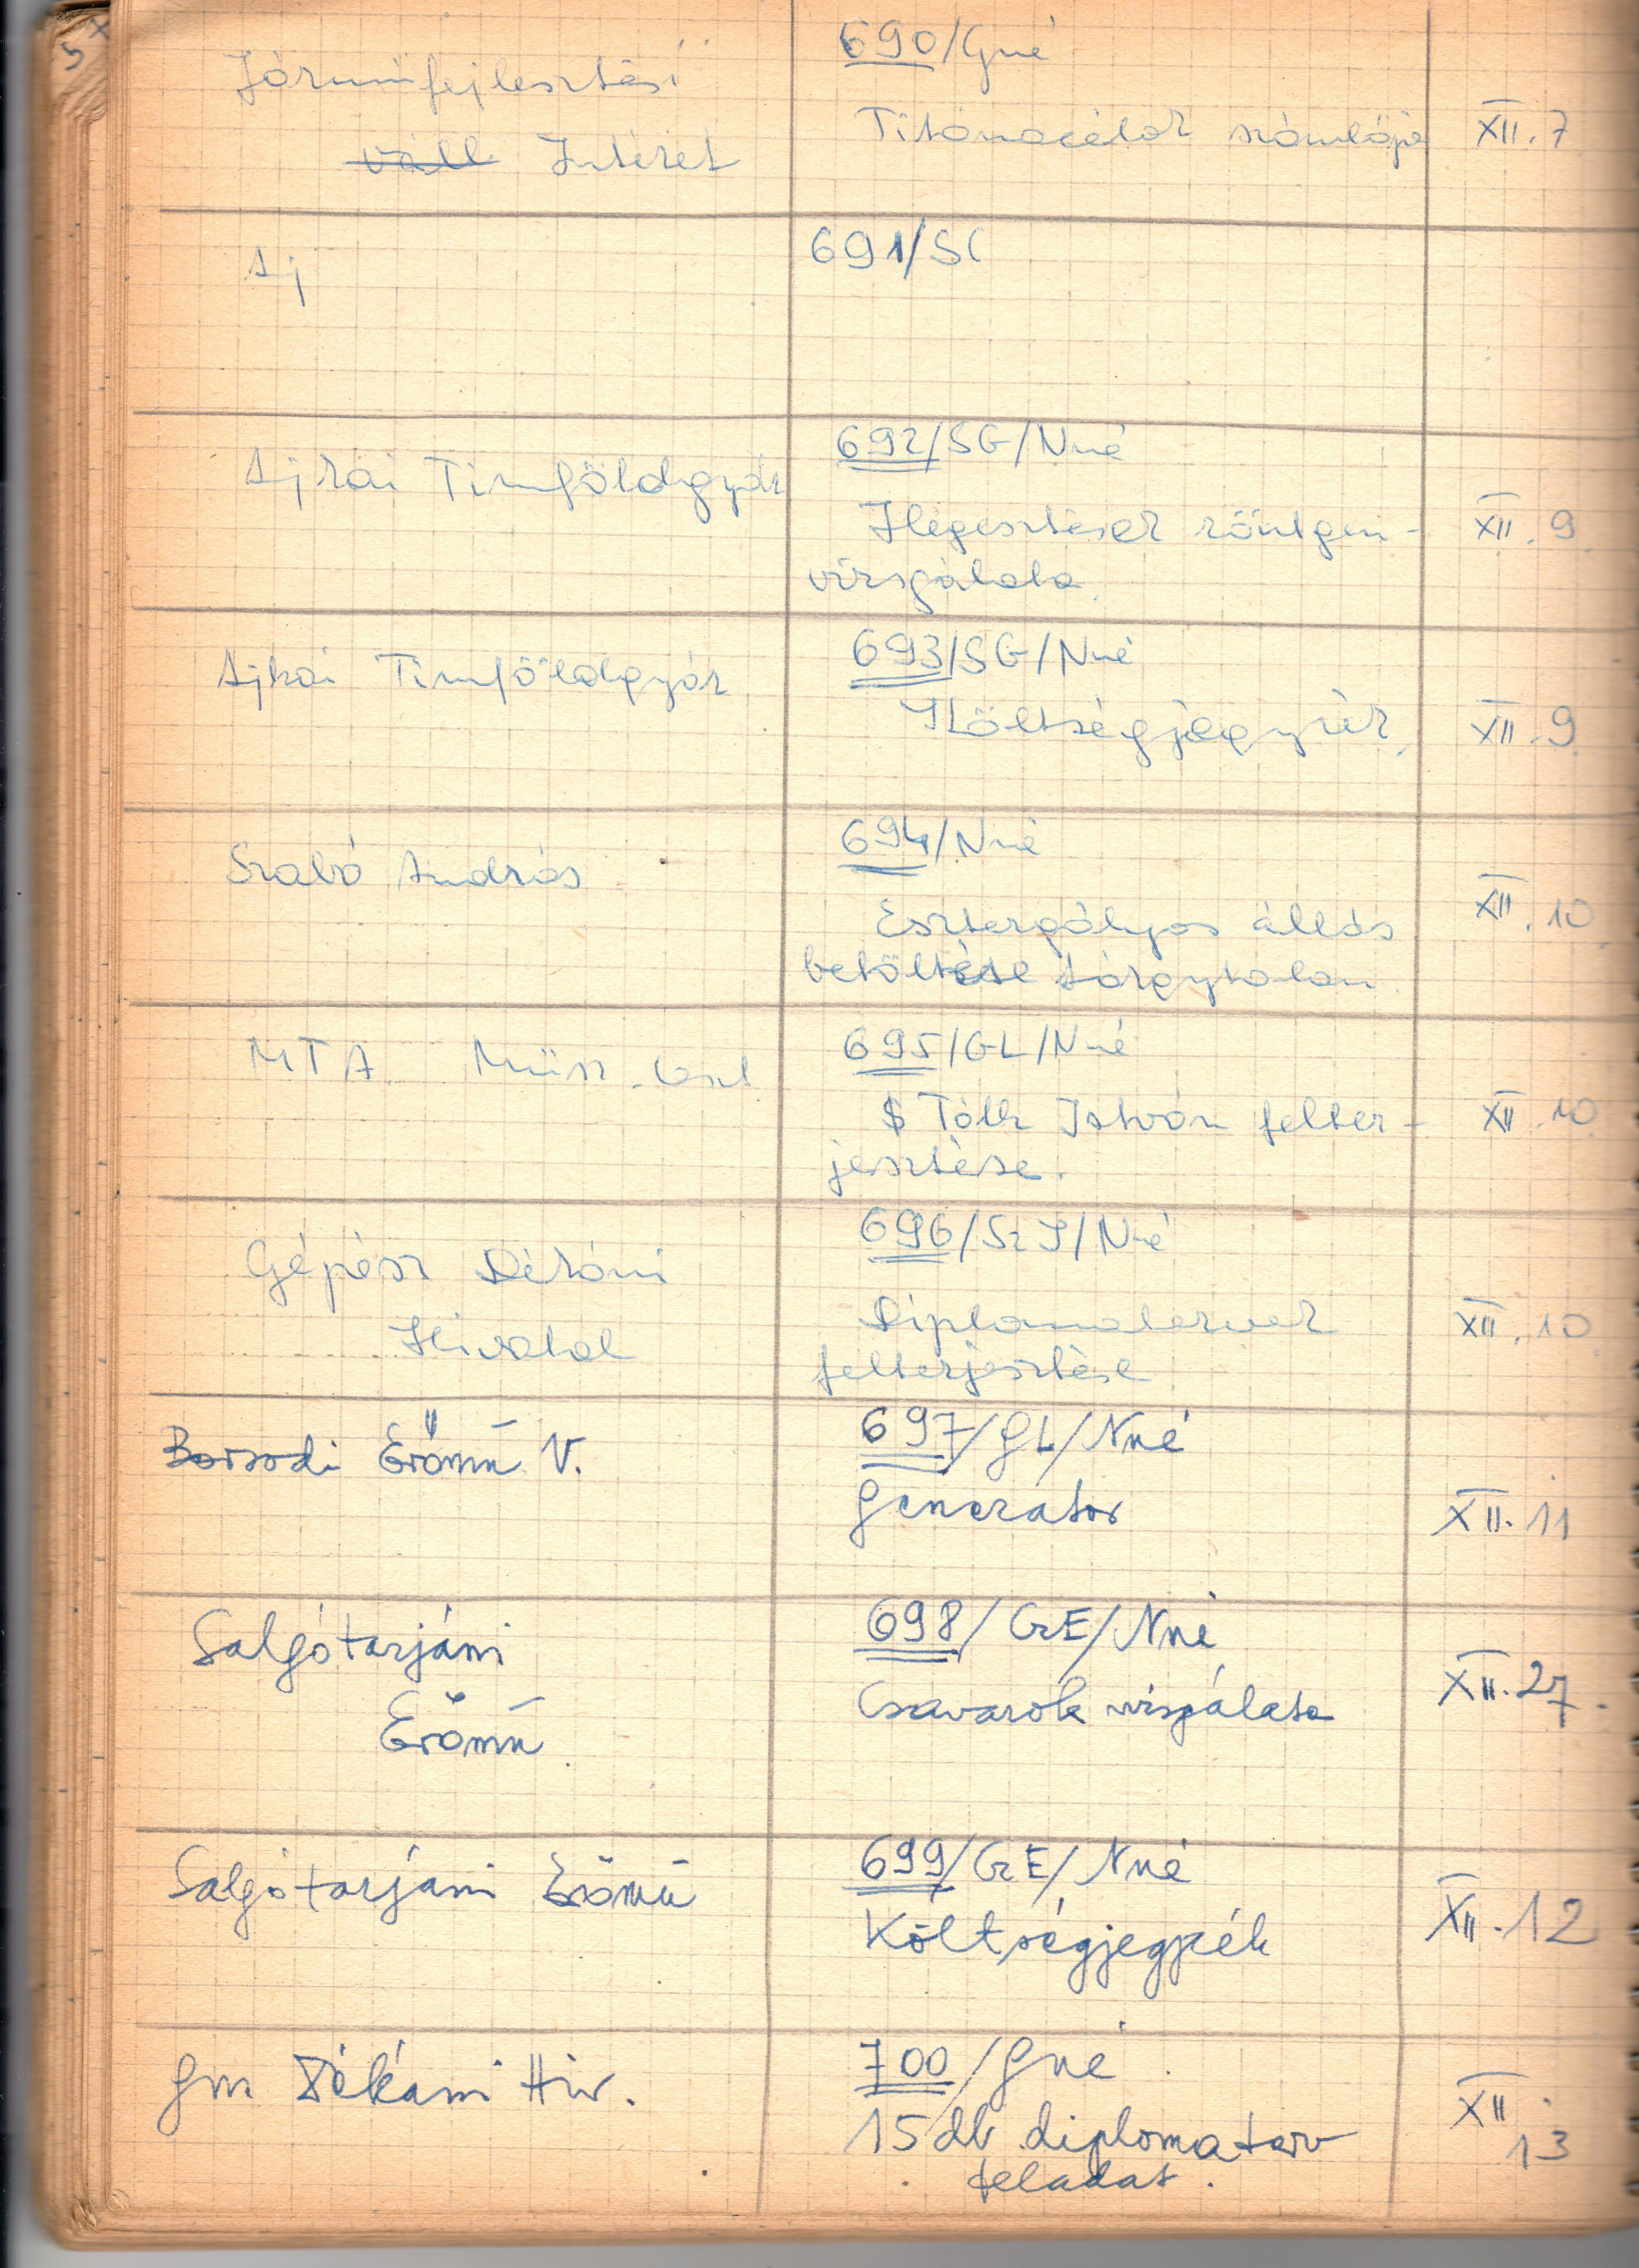 Járműfejlesztési
690/Gné
váll Intézet
Titánacélok számlája
XII. 7
Aj
691/SG
Ajkai Timföldgyár
692/SG/Nné
Hegesztések röntgen-
vizsgálata.
XII. 9.
Ajkai Timföldgyár
693/SG/Nné
Költségjegyzék.
XII. 9.
Szabó András
694/Nné
Esztergályos állás
betöltése tárgytalan.
XII. 10.
MTA. Műsz. Oszt
695/GL/Nné
Tóth István felter-
jesztése.
XII. 10.
Gépész Dékáni
Hivatal
696/SzJ/Nné
Diplomatervek
felterjesztése.
XII. 10.
Borsodi Erőmű V.
697/GL/Nné
Generátor
XII. 11
Salgótarjáni
Erőmű
698/GzE/Nné
Csavarok vizsgálata
XII. 27.
Salgótarjáni Erőmű
699/GzE/Nné
Költségjegyzék
XII. 12
Gm Dékáni Hiv.
700/Gné
15 db diplomaterv
feladat.
XII.
13